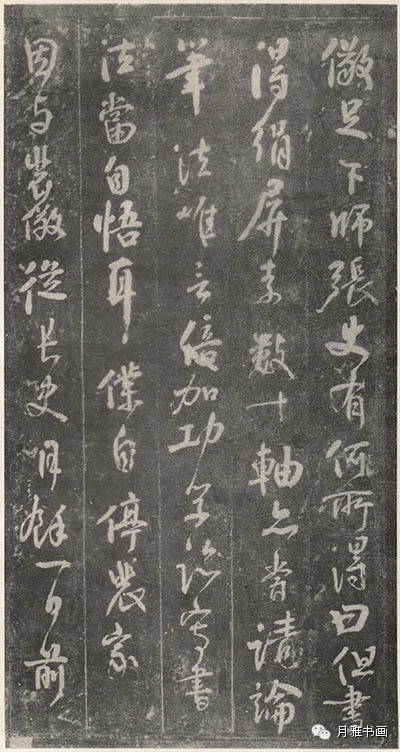 儆足下師張史有何所得曰但書
得絹屏素數十軸亦嘗請論
筆法唯言倍加功學臨寫書
法當自悟耳僕自停裴家
因与裴儆從長史月餘一日前
月雅书画